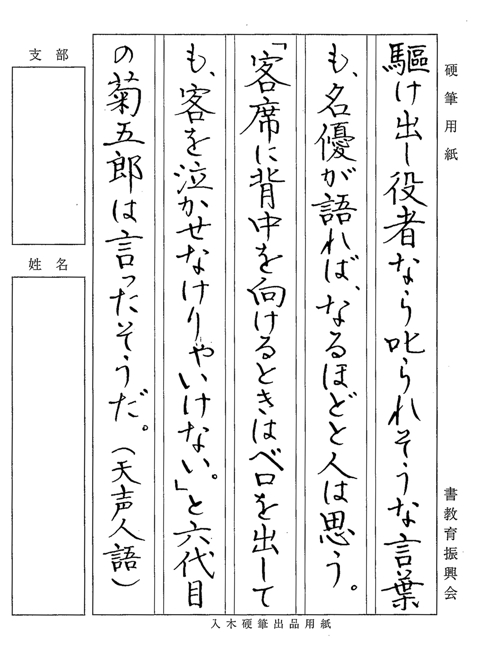 硬筆用紙
書教育振興会
駆け出し役者なら叱られそうな言葉
も、名優が語れば、なるほどと人は思う。
「客席に背中を向けるときはベロを出して
も、客を泣かせなけりゃいけない。」と六代目
の菊五郎は言ったそうだ。(天声人語)
支部
姓名
入木硬筆出品用紙